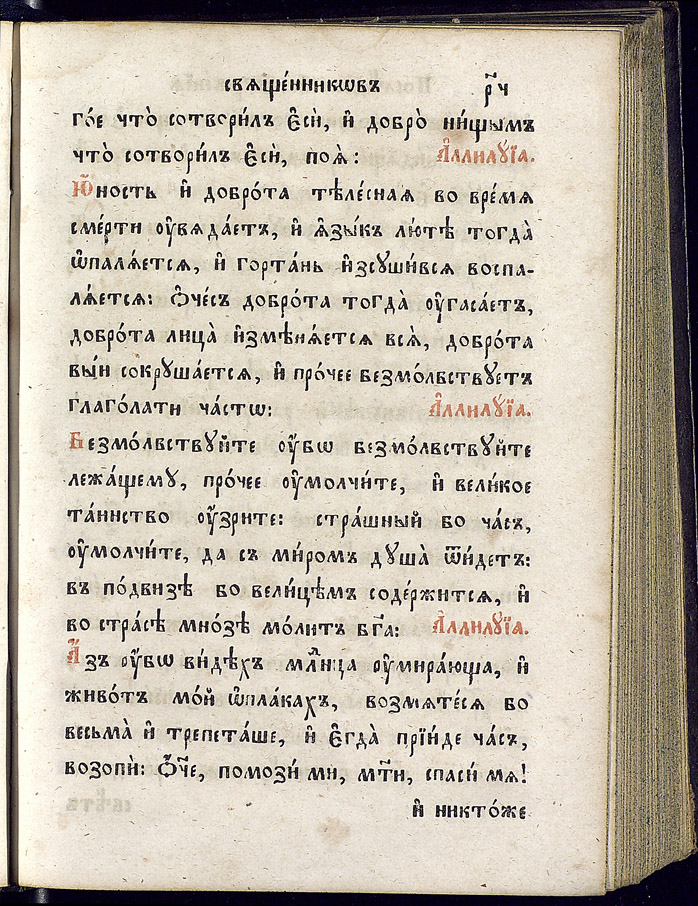 свѧще́нникѡвъ р҃ч
го́е что̀ сотвори́лъ є҆сѝ, и҆ добро̀ ни́щымъ
что̀ сотвори́лъ є҆сѝ, поѧ̀: А҆ллилꙋ́їа.
Ю҆́ность и҆ добро́та тѣле́снаѧ во вре́мѧ
сме́рти ᲂу҆вѧда́етъ, и҆ ѧ҆зы́къ лю́тѣ тогда̀
ѡ҆палѧ́етсѧ, и҆ горта́нь и҆зсꙋши́всѧ воспа-
лѧ́етсѧ: Ѻ҆че́съ добро́та тогда̀ ᲂу҆гаса́етъ,
добро́та лица̀ и҆змѣнѧ́етсѧ всѧ̀, добро́та
вы́и сокрꙋша́етсѧ, и҆ про́чее безмо́лвствꙋетъ
глаго́лати ча́стѡ: А҆ллилꙋ́їа.
Безмо́лвствꙋйте ᲂу҆̀бѡ безмо́лвствꙋйте
лежа́щемꙋ, про́чее ᲂу҆молчи́те, и҆ вели́кое
та́инство ᲂу҆́зрите: стра́шный бо ча́съ,
ᲂу҆молчи́те, да съ ми́ромъ дꙋша̀ ѿи́детъ:
въ по́двизѣ бо вели́цѣмъ соде́ржитсѧ, и҆
во стра́сѣ мно́зѣ мо́литъ бг҃а: А҆ллилꙋ́їа.
А҆́зъ ᲂу҆̀бѡ ви́дѣхъ млⷣнца ᲂу҆мира́юща, и҆
живо́тъ мо́й ѡ҆пла́кахъ, возмѧте́сѧ бо
весьма̀ и҆ трепета́ше, и҆ є҆гда̀ прїи́де ча́съ,
возопѝ: Ѻ҆́ч҃е, помози́ ми, мт҃и, спаси́ мѧ!
и҆ никто́же